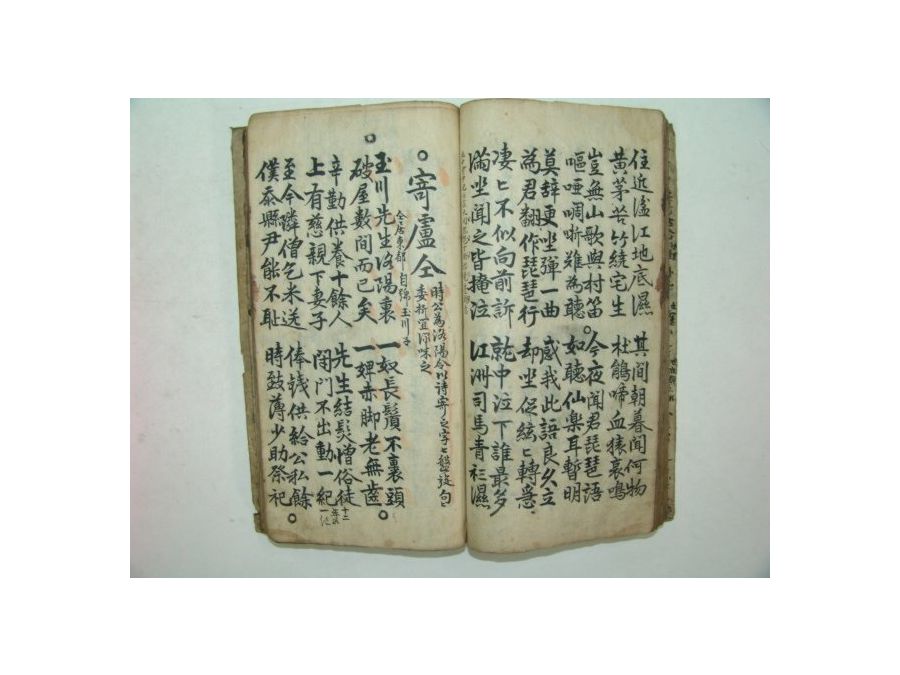 住近湓江地底濕 其間朝暮聞何物
黃茅苦竹繞宅生 杜鵑啼血猿哀鳴
豈無山歌與村笛 今夜聞君琵琶語
嘔啞啁哳難為聽 如聽仙樂耳暫明
莫辭更坐彈一曲 感我此語良久立
為君翻作琵琶行 却坐促絃ヒ轉急
凄ヒ不似向前訴 就中泣下誰最多
滿坐聞之皆掩泣 江洲司馬青衫濕
寄盧仝
時公為洛陽令以詩寄之字ヒ盤旋句ヒ
委折宜深味之
仝居東都自號玉川子
玉川先生洛陽裏 一奴長鬚不裹頭
破屋數間而已矣 一婢赤脚老無齒
辛勤供養十餘人 先生結髮憎俗徒
上有慈親下妻子 閉門不出動一紀
十二年為一紀
至今隣僧乞米送 俸錢供給公私餘
僕忝縣尹能不耻 時致薄少助祭祀